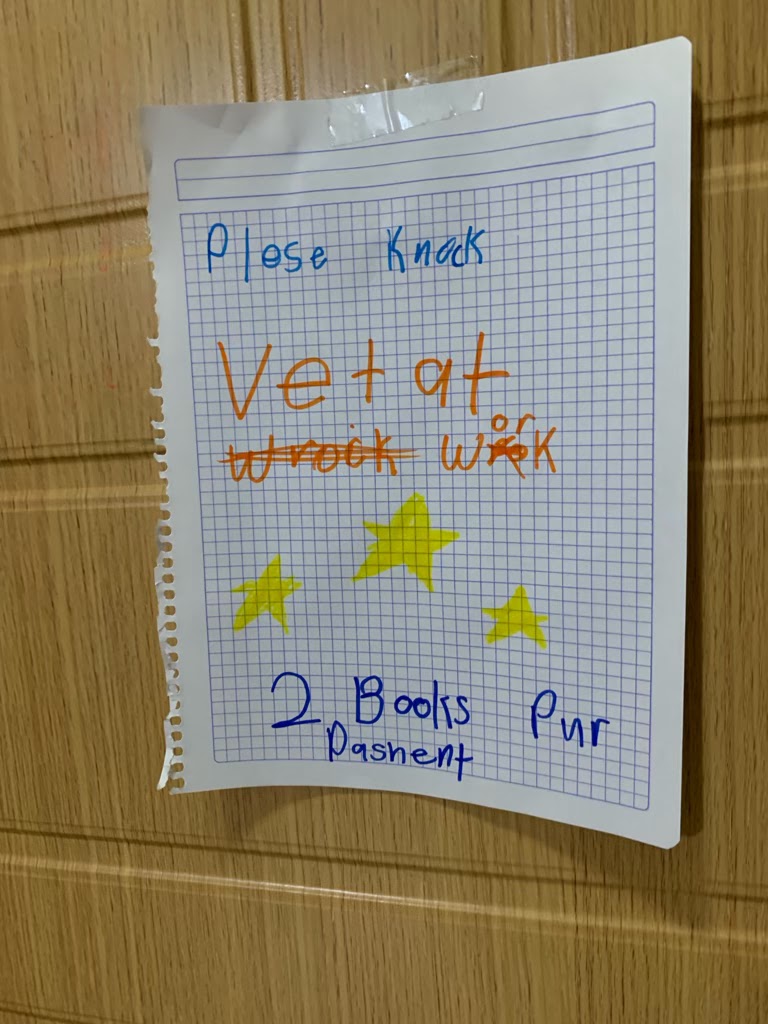 Plese Knock
Vet at
wroik work
2 Books Pur
Pashent